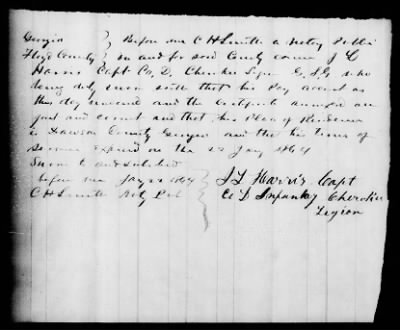 Georgia } Before me C H Smith a Notry Public
Floyd County } in and for said County came J L
Harris Capt Co. D. Cherokee Legion G. S. G who
being duly sworn saith that his Pay account as
this day rendered and the certificate annexed are
just and correct and that his Place of Residence
is Dawson County Georgia and that his term of
Service expired on the 22 Jany 1864
Sworn to and subscribed
before me Jany 22 1864 } J L Harris Capt
C H Smith Noty Pub } Co D Infantry Cherokee
Legion